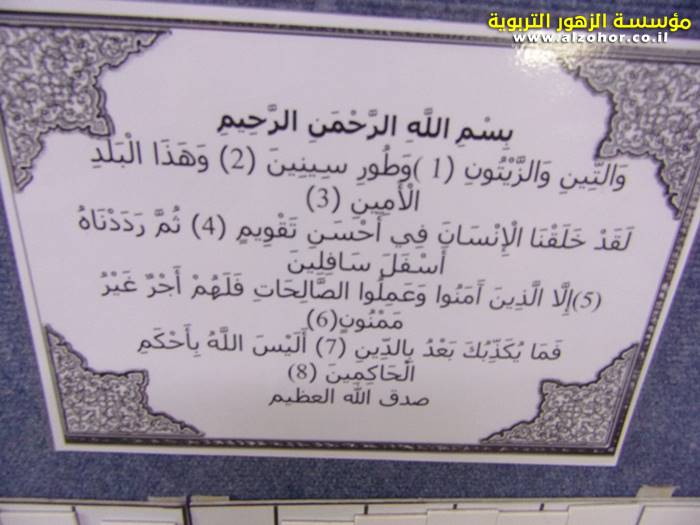 مؤسسة الزهور التربوية
www.alzohor.co.il
بِسْمِ اللَّهِ الرَّحْمَنِ الرَّحِيمِ
وَالتِّينِ وَالزَّيْتُونِ (1 )وَطُورِ سِينِينَ (2) وَهَذَا الْبَلَدِ
الْأَمِينِ (3)
لَقَدْ خَلَقْنَا الْإِنْسَانَ فِي أَحْسَنِ تَقْوِيمٍ (4) ثُمَّ رَدَدْنَاهُ
أَسْفَلَ سَافِلِينَ
(5)إِلَّا الَّذِينَ آَمَنُوا وَعَمِلُوا الصَّالِحَاتِ فَلَهُمْ أَجْرٌ غَيْرُ
مَمْنُونٍ(6)
فَمَا يُكَذِّبُكَ بَعْدُ بِالدِّينِ (7) أَلَيْسَ اللَّهُ بِأَحْكَمِ
الْحَاكِمِينَ (8)
صدق الله العظيم